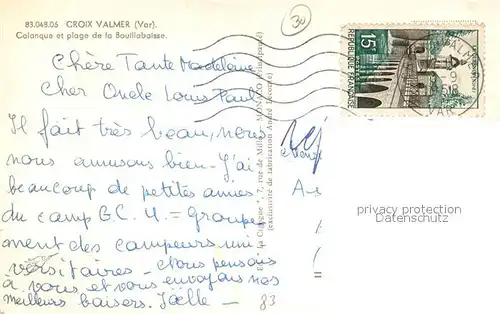 83.048.05 CROIX VALMER (Var).
Calanque et plage de la Bouillabaisse.
30
Chère Tante Madeleine
Cher Oncle Louis Paul
Il fait très beau, nous
nous amusons bien - J'ai
beaucoup de petites amies
du camp G.C.U. = Groupe-
ment des campeurs uni
versitaires - Nous pensons
à vous et vous envoyons nos
meilleurs baisers. Joëlle -
83
"La Cigogne", 7, rue de Millo - MONACO
(exclusivité de fabrication André Leconte)
15F
REPUBLIQUE FRANÇAISE
VALM
VAR
rép
A-
privacy protection
Datenschutz